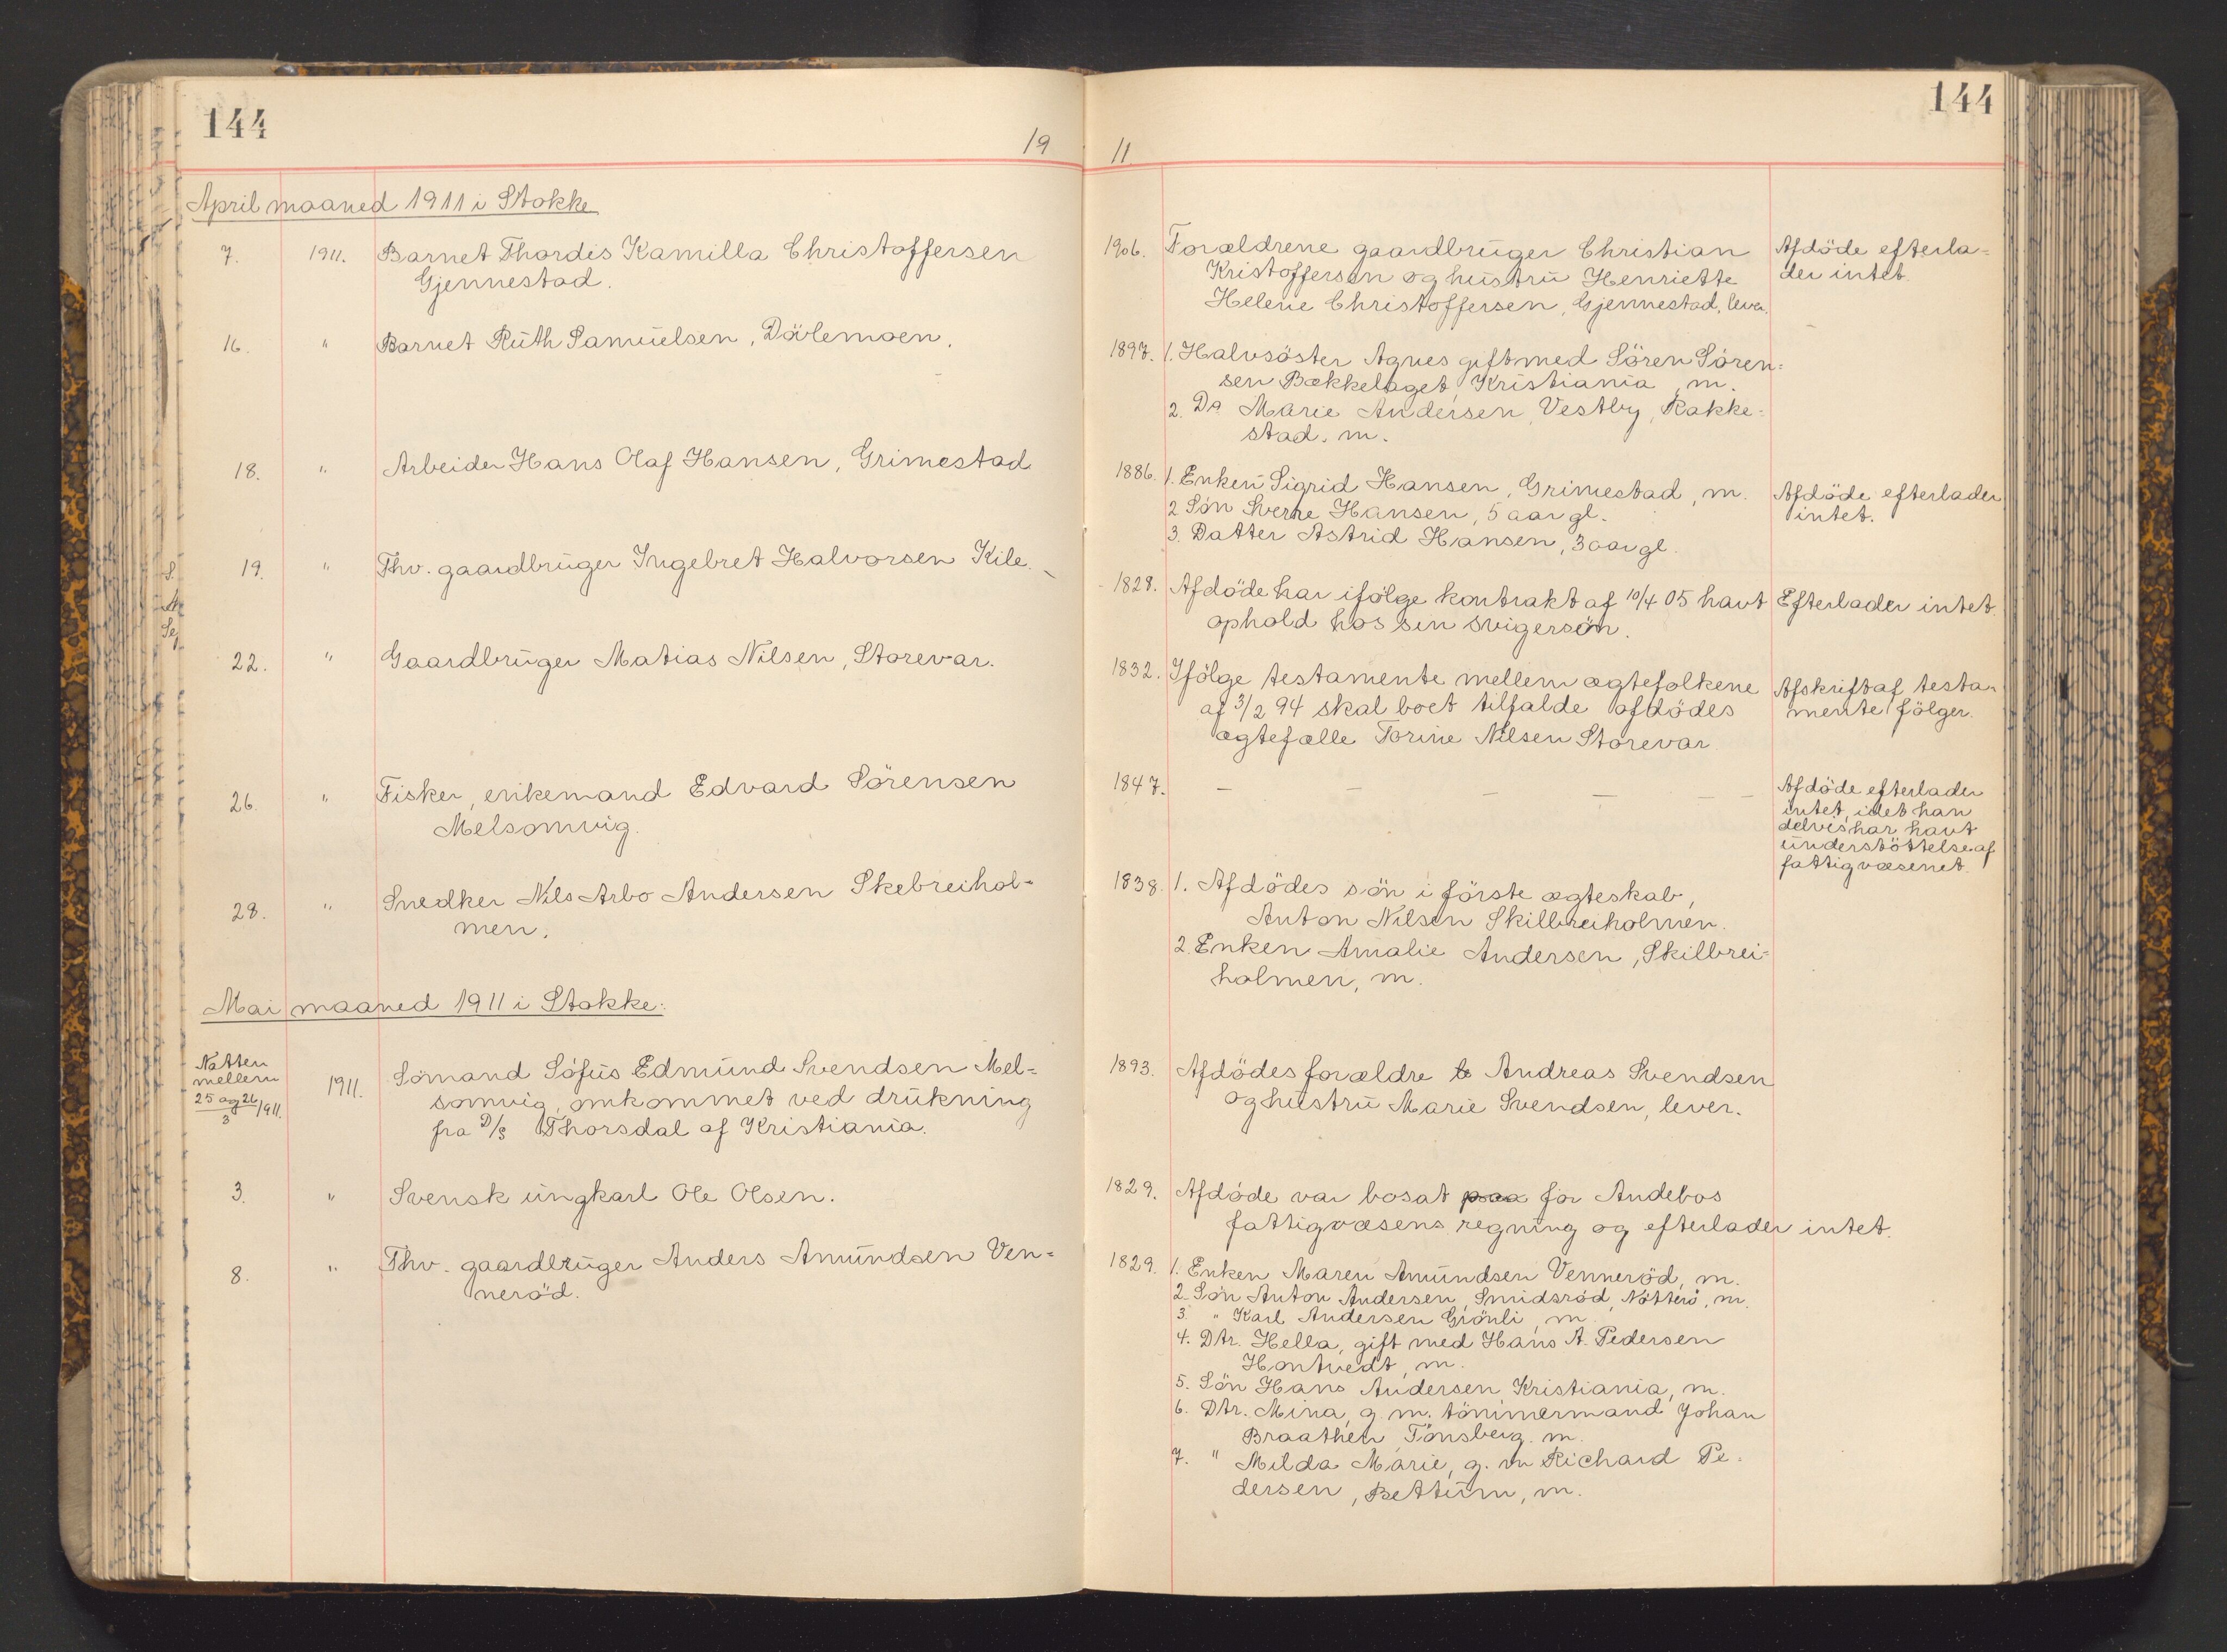 144
144
19 11
April maaned 1911 i Stokke
7. 1911. Barnet Thordis Kamilla Christoffersen
Gjennestad.
1906. Forældrene gaardbruger Christian
Kristoffersen og hustru Henriette
Helene Christoffersen, Gjennestad, lever.
Afdöde efterla-
der intet.
16. " Barnet Ruth Samuelsen, Dölemoen.
1897. 1. Halvsöster Agnes gift med Sören Sören-
sen Bækkelaget, Kristiania, m.
2. Do Marie Andersen, Vestby, Rakke-
stad. m.
18. " Arbeider Hans Olaf Hansen, Grimestad
1886. 1. Enken Sigrid Hansen, Grimestad, m.
2 Sön Sverre Hansen, 5 aar gl.
3. Datter Astrid Hansen, 3 aar gl.
Afdöde efterlader
intet.
19. " Fhv. gaardbruger Ingebret Halvorsen Kile.
1828. Afdöde har ifölge kontrakt af 10/4 05 havt
ophold hos sin svigersön.
Efterlader intet.
22. " Gaardbruger Matias Nilsen, Storevar.
1832. Ifölge testamente mellem ægtefolkene
af 3/2 94 skal boet tilfalde afdödes
ægtefælle Torine Nilsen Storevar
Afskrift af testa-
mente fölger.
26. " Fisker, enkemand Edvard Sörensen
Melsomvig.
1847. — — — — — —
Afdöde efterlader
intet, idet han
delvis har havt
understöttelse af
fattigvæsenet.
28. " Snedker Nils Arbo Andersen Skebreihol-
men.
1838. 1. Afdödes sön i förste ægteskab,
Anton Nilsen Skilbreiholmen.
2. Enken Amalie Andersen, Skilbrei-
holmen, m.
Mai maaned 1911 i Stokke:
Natten
mellem
25 og 26/3 1911.
1911. Sömand Sófus Edmund Svendsen Mel-
somvig, omkommet ved drukning
fra D/S Thorsdal af Kristiania.
1893. Afdödes forældre Andreas Svendsen
og hustru Marie Svendsen, lever.
3. " Svensk ungkarl Ole Olsen.
1829. Afdöde var bosat paa for Andebos
fattigvæsens regning og efterlader intet.
8. " Fhv. gaardbruger Anders Amundsen Ven-
neröd.
1829. 1. Enken Maren Amundsen Venneröd, m.
2. Sön Anton Andersen, Smidsröd, Nötterö, m.
3. " Karl Andersen Grönli, m
4. Dtr. Hella, gift med Hans A. Pedersen
Hontvedt, m.
5. Sön Hans Andersen Kristiania, m.
6. Dtr. Mina, g. m. tömmermand Johan
Braathen, Tönsberg. m.
7. " Milda Marie, g. m Richard Pe-
dersen, Bettum, m.